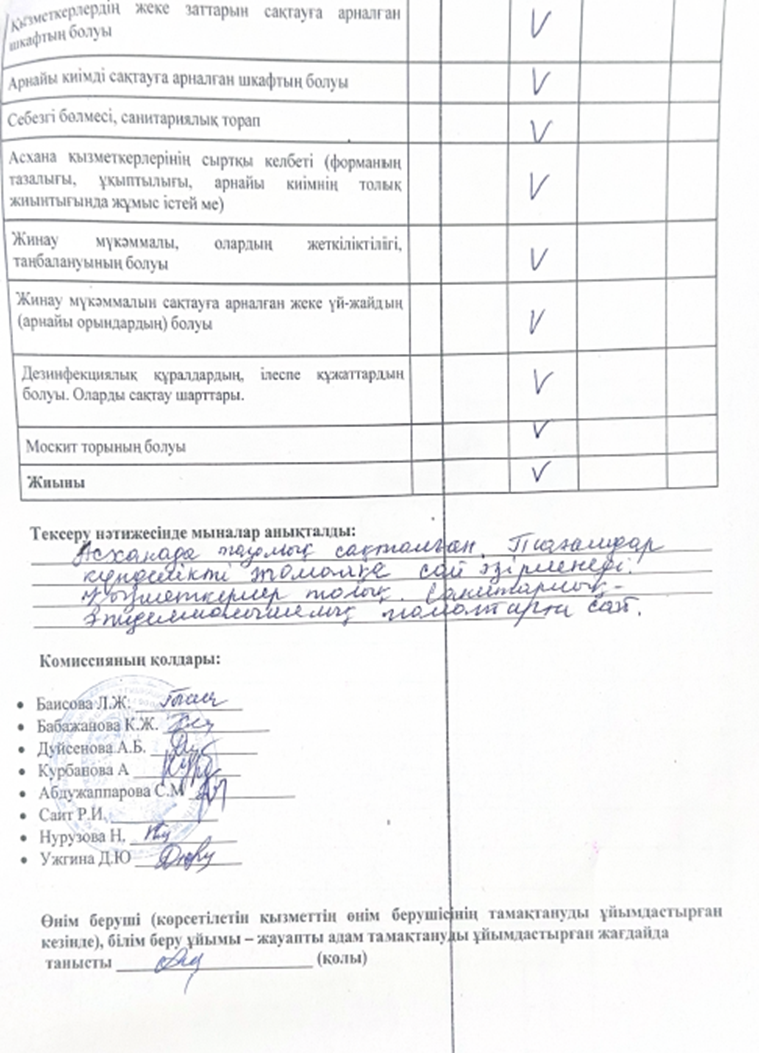 Қызметкерлердің жеке заттарын сақтауға арналған
шкафтың болуы
V
Арнайы киімді сақтауға арналған шкафтың болуы
V
Себезгі бөлмесі, санитариялық торап
V
Асхана қызметкерлерінің сыртқы келбеті (форманың
тазалығы, ұқыптылығы, арнайы киімнің толық
жиынтығында жұмыс істей ме)
V
Жинау мүкәммалы, олардың жеткіліктілігі,
таңбалануының болуы
V
Жинау мүкәммалын сақтауға арналған жеке үй-жайдың
(арнайы орындардың) болуы
V
Дезинфекциялық құралдардың, ілеспе құжаттардың
болуы. Оларды сақтау шарттары.
V
Москит торының болуы
V
Жиыны
V
Тексеру нәтижесінде мыналар анықталды:
Асханада тазалық сақталған. Тағамдар
күнделікті талапқа сай әзірленеді.
Қызметкерлер толық. Санитарлық-
эпидемиологиялық талаптарға сай.
Комиссияның қолдары:
• Баисова Л.Ж.
• Бабажанова К.Ж.
• Дуйсенова А.Б.
• Курбанова А
• Абдужаппарова С.М
• Саит Р.И.
• Нурузова Н.
• Ужгина Д.Ю
Өнім беруші (көрсетілетін қызметтің өнім берушісінің тамақтануды ұйымдастырған
кезінде), білім беру ұйымы – жауапты адам тамақтануды ұйымдастырған жағдайда
танысты (қолы)